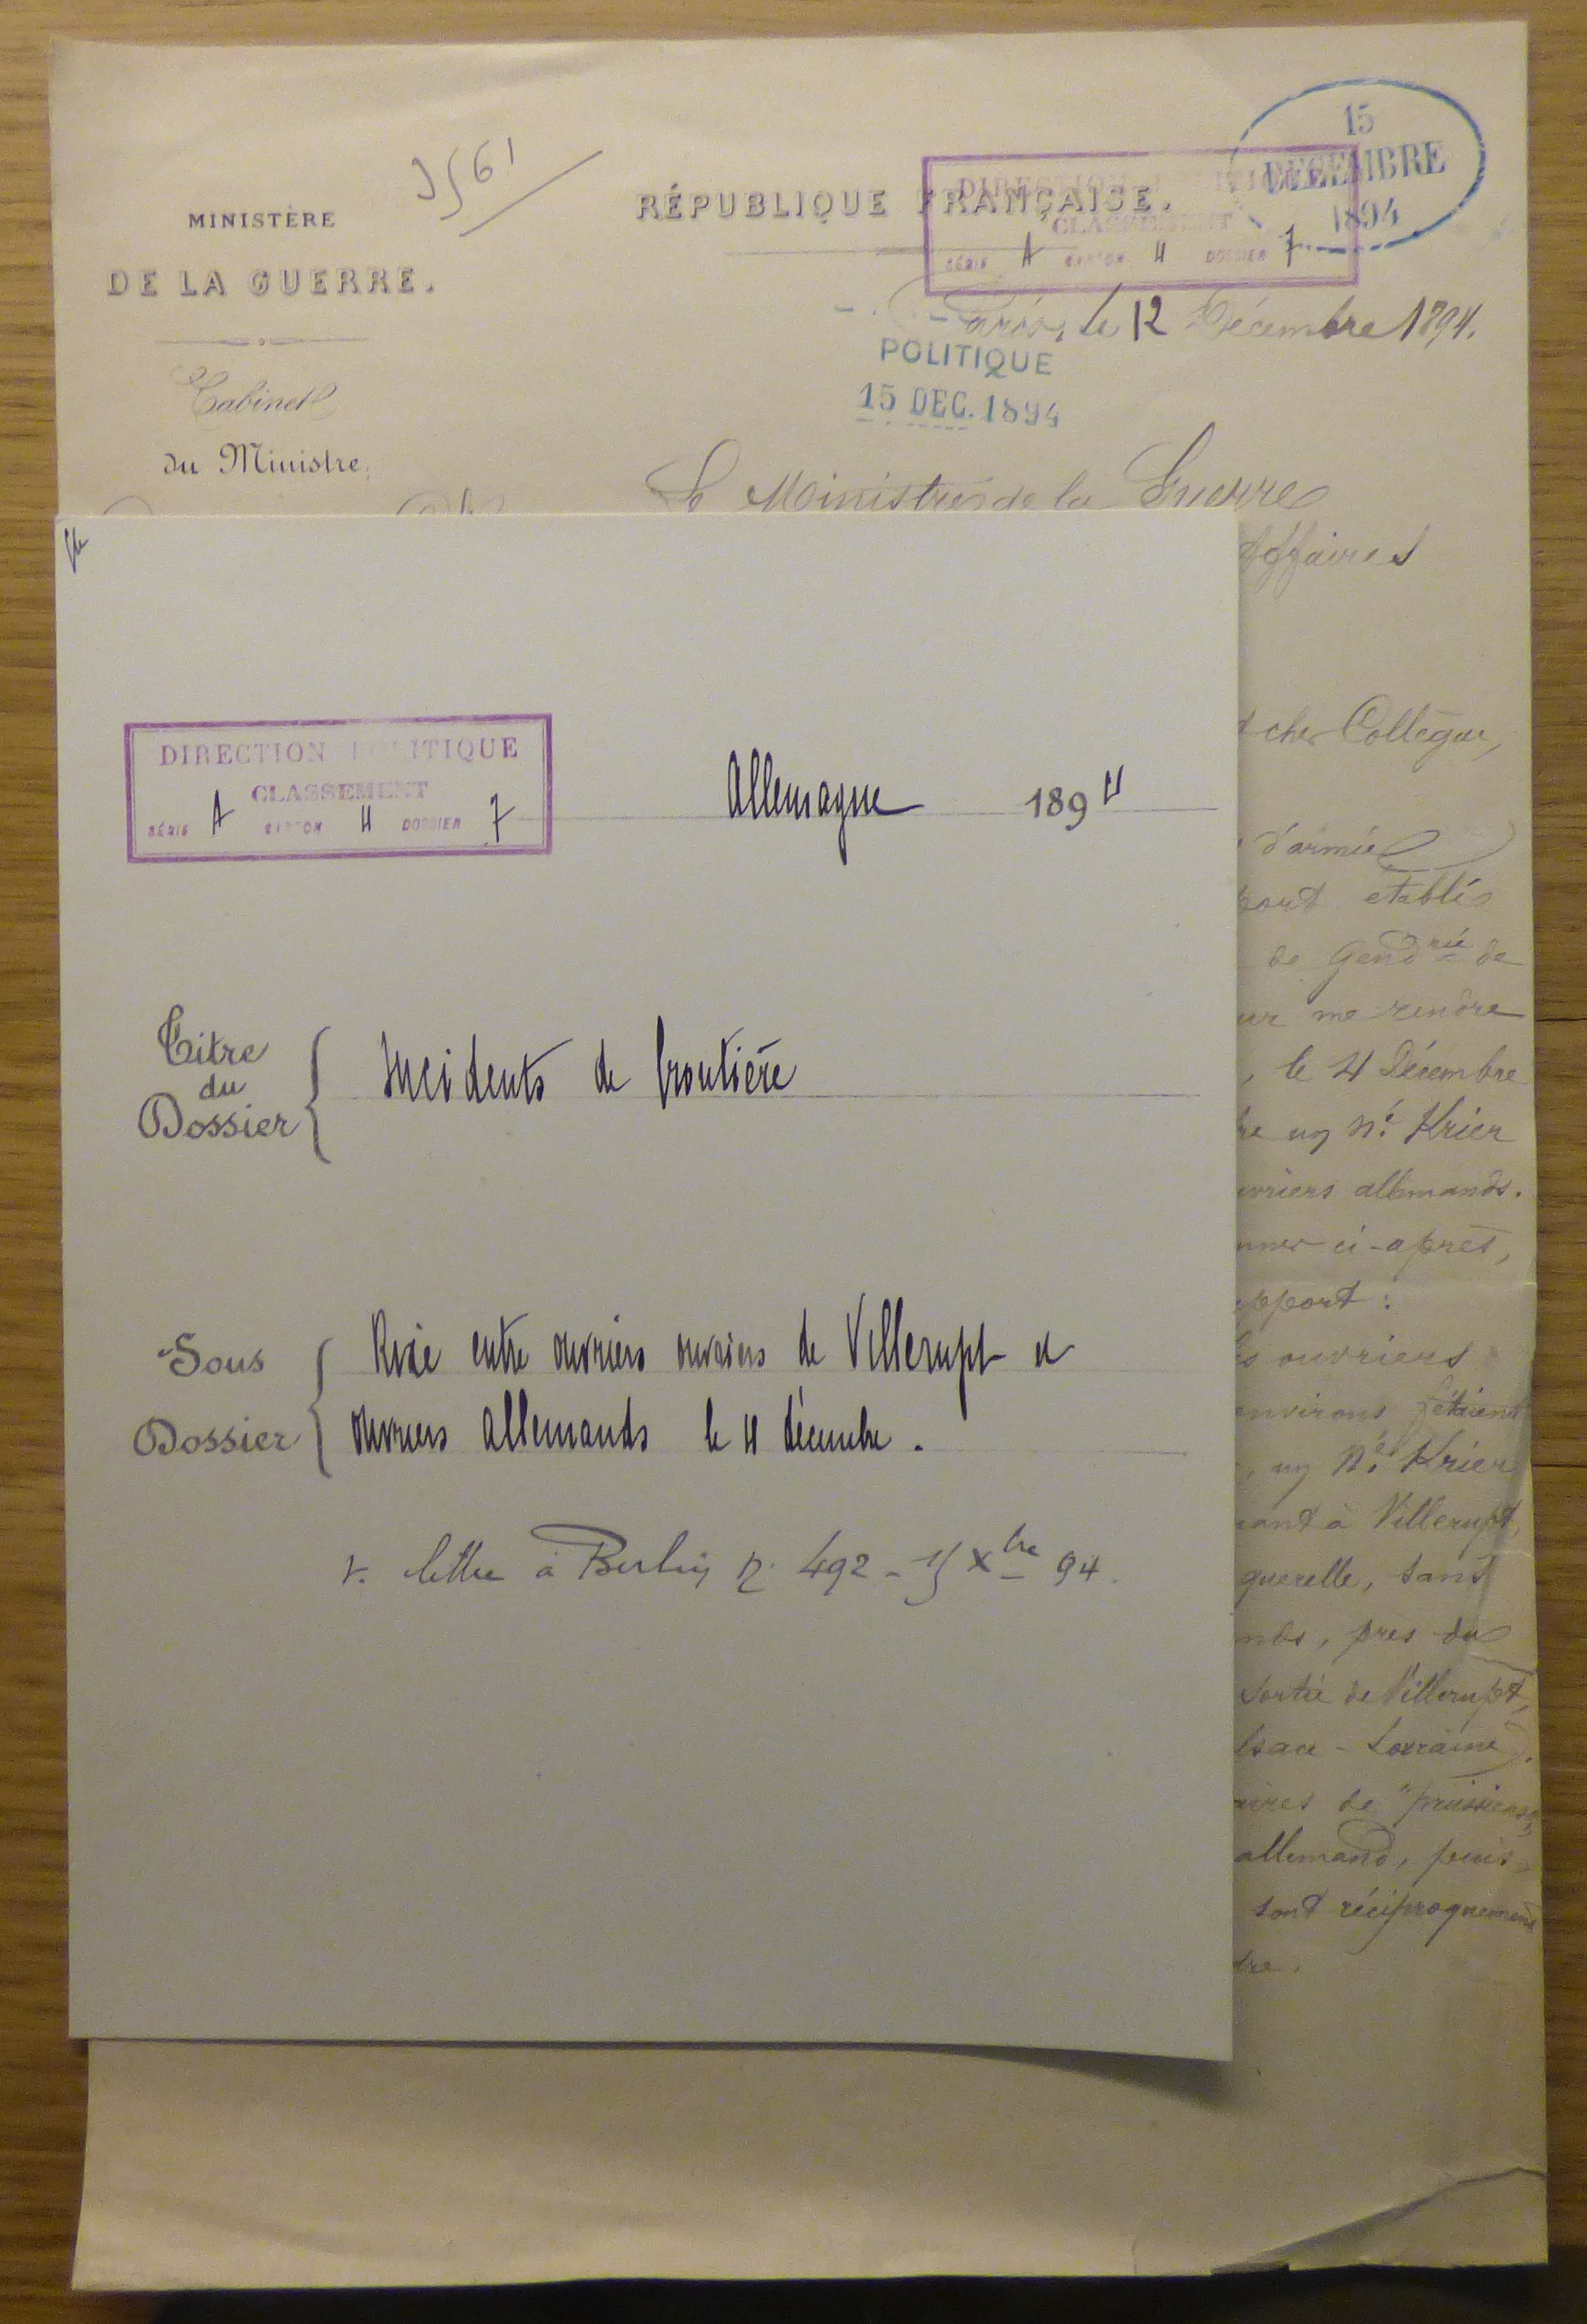 MINISTÈRE
DE LA GUERRE.
Cabinet
du Ministre.
RÉPUBLIQUE FRANÇAISE.
15
DECEMBRE
1894
DIRECTION POLITIQUE
CLASSEMENT
SÉRIE A CARTON 4 DOSSIER 7
Paris, le 12 Décembre 1894.
POLITIQUE
15 DEC. 1894
Le Ministre de la Guerre
Affaires
cher Collègue,
d'armée
port établi
de Gend.rie de
me rendre
, le 4 Décembre
un né Krier
uvriers allemands.
ci-après,
pport :
ouvriers
environs s'étaient
, un né Krier
à Villerupt,
querelle, sans
nds, près du
sortie de Villerupt,
lsace-Lorraine).
de "prussiens",
allemand, puis
sont réciproquement
DIRECTION POLITIQUE
CLASSEMENT
SÉRIE A CARTON 4 DOSSIER 7
Allemagne 1894
Titre
du
Dossier
Incidents de frontière
Sous
Dossier
Rixe entre ouvriers ouvriers de Villerupt et
ouvriers allemands le 4 décembre.
v. lettre à Berlin n. 492 - Xbre 94.